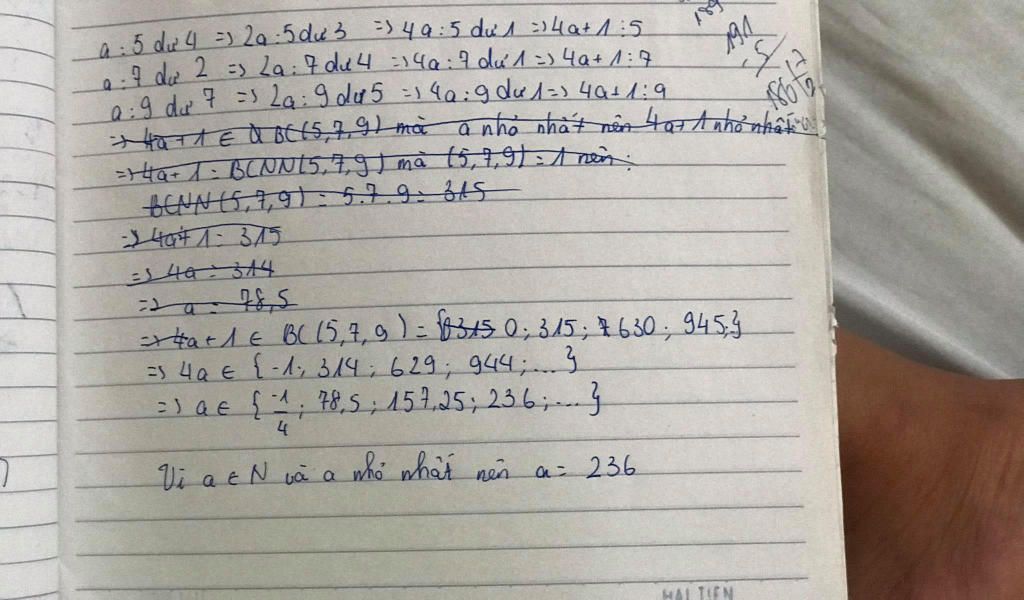 a : 5 dư 4 => 2a : 5 dư 3 => 4a : 5 dư 1 => 4a + 1 : 5
a : 7 dư 2 => 2a : 7 dư 4 => 4a : 7 dư 1 => 4a + 1 : 7
a : 9 dư 7 => 2a : 9 dư 5 => 4a : 9 dư 1 => 4a + 1 : 9
=> 4a + 1 ∈ BC(5,7,9) mà a nhỏ nhất nên 4a + 1 nhỏ nhất
=> 4a + 1 = BCNN(5,7,9) mà (5,7,9) = 1 nên :
BCNN(5,7,9) = 5.7.9 = 315
=> 4a + 1 = 315
=> 4a = 314
=> a = 78,5
=> 4a + 1 ∈ BC(5,7,9) = { 0; 315; 630; 945; }
=> 4a ∈ {-1; 314; 629; 944; ...}
=> a ∈ {-1/4; 78,5; 157,25; 236; ...}
Vì a ∈ N và a nhỏ nhất nên a = 236
189
191
HAI TIEN